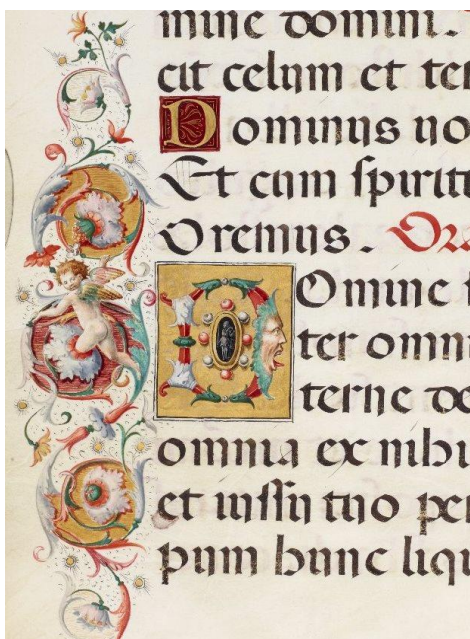 mine domini.
cit celum et te
Dominus vo
Et cum spirit
Oremus. Ora
Domine
ter omni
terne de
omnia ex nihi
et iussu tuo per
pum hunc liqu